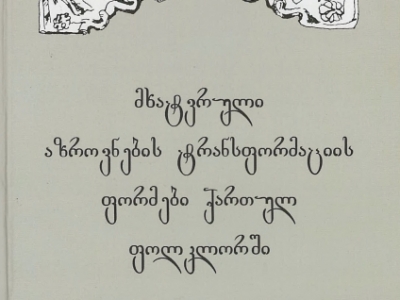 მხატვრული
აზროვნების ტრანსფორმაციის
ფორმები ქართულ
ფოლკლორში